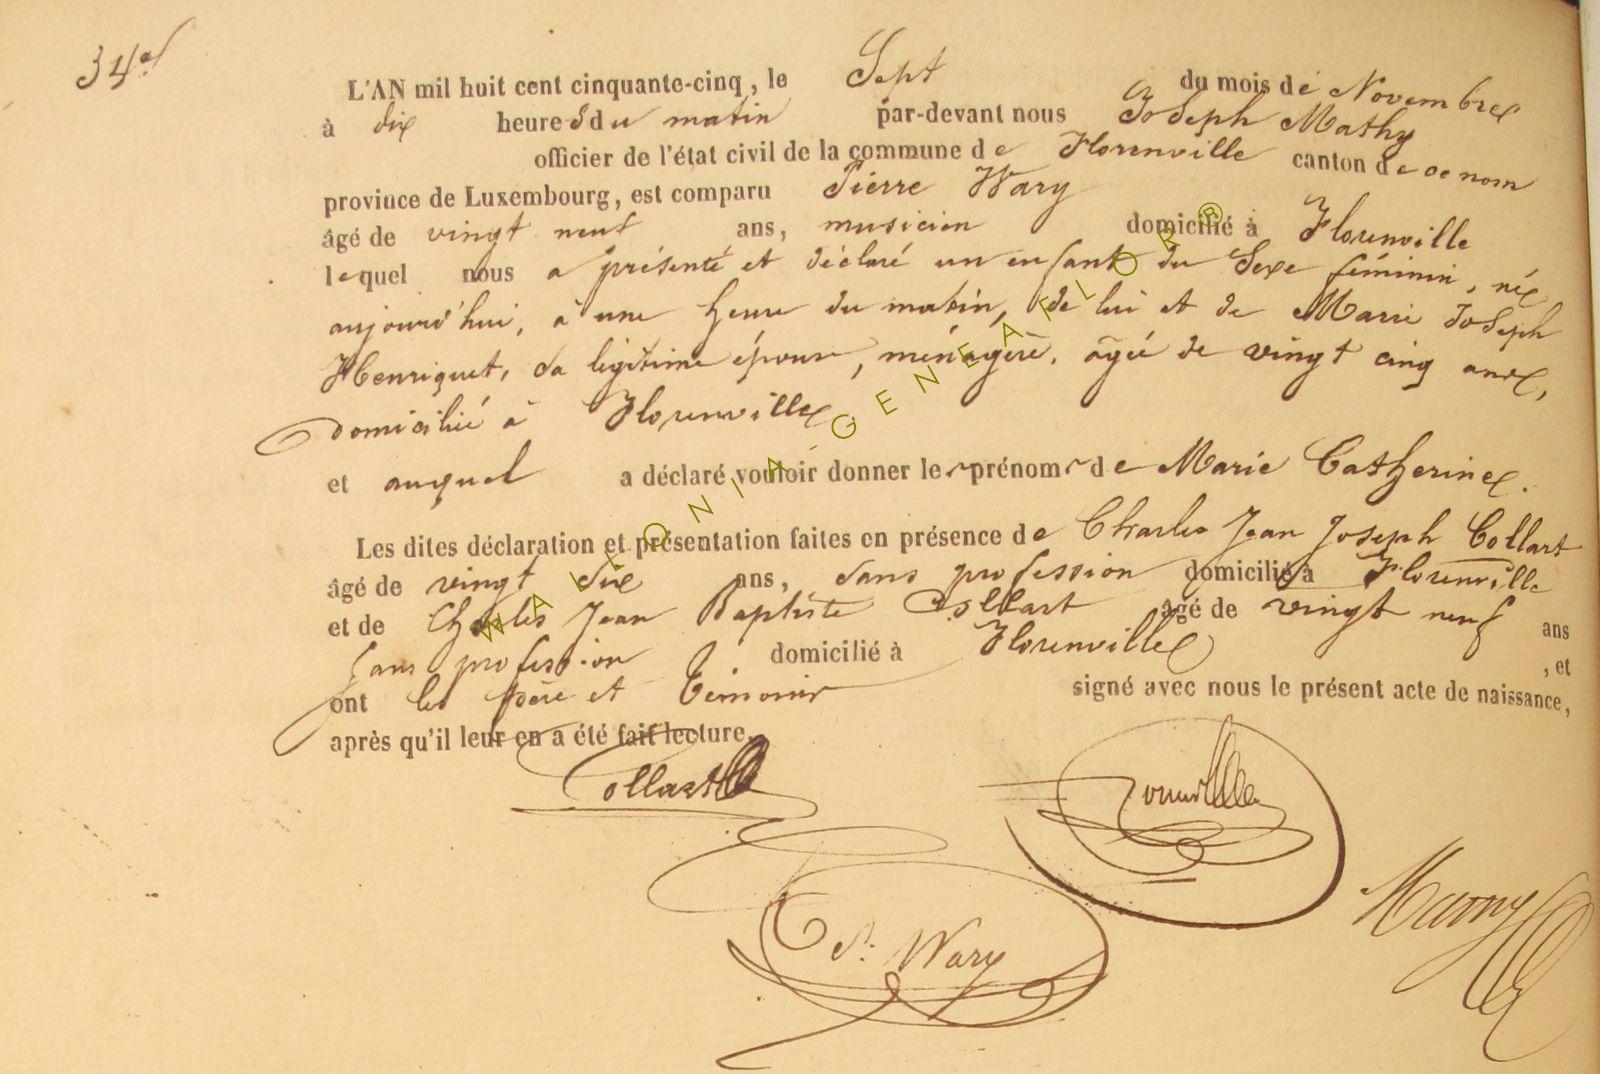 34e
L'AN mil huit cent cinquante-cinq, le Sept du mois de Novembre
à dix heures du matin par-devant nous Joseph Mathy
officier de l'état civil de la commune de Florenville canton de ce nom
province de Luxembourg, est comparu Pierre Wary
âgé de vingt neuf ans, musicien domicilié à Florenville
lequel nous a présenté et déclaré un enfant du Sexe féminin, né
aujourd'hui, à une heure du matin, de lui et de Marie Joseph
Henriquet, sa légitime épouse, ménagère, âgée de vingt cinq ans,
domicilié à Florenville
et auquel a déclaré vouloir donner le prénom de Marie Catherine.
Les dites déclaration et présentation faites en présence de Charles Jean Joseph Collart
âgé de vingt six ans, sans profession domicilié à Florenville
et de Charles Jean Baptiste Collart âgé de vingt neuf ans
sans profession domicilié à Florenville , et
ont les père et témoins signé avec nous le présent acte de naissance,
après qu'il leur en a été fait lecture.
Collart
P. Wary
WALLONIA-GENEAFLOR®